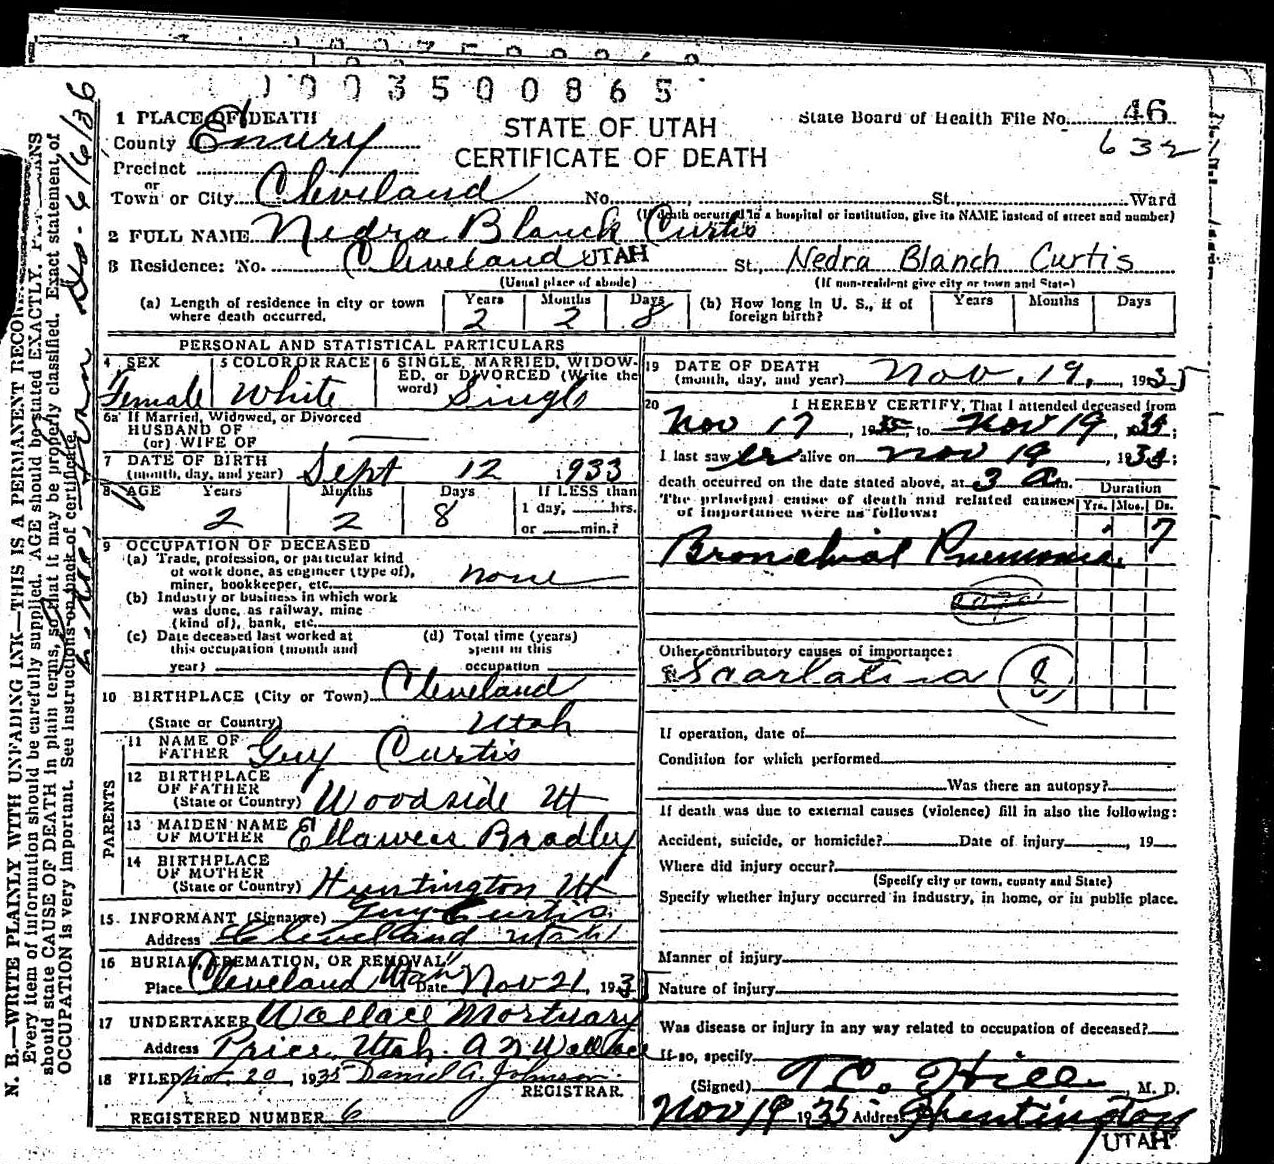 1003500865
1 PLACE OF DEATH
STATE OF UTAH
CERTIFICATE OF DEATH
State Board of Health File No. 46
632
County Emery
Precinct
or
Town or City Cleveland No. St., Ward
(If death occurred in a hospital or institution, give its NAME instead of street and number)
2 FULL NAME Nedra Blanck Curtis
3 Residence: No. Cleveland UTAH St., Nedra Blanch Curtis
(Usual place of abode) (If non-resident give city or town and State)
(a) Length of residence in city or town where death occurred. Years 2 Months 2 Days 8
(b) How long in U. S., if of foreign birth? Years Months Days
PERSONAL AND STATISTICAL PARTICULARS
4 SEX Female
5 COLOR OR RACE White
6 SINGLE, MARRIED, WIDOWED, or DIVORCED (Write the word) Single
6a If Married, Widowed, or Divorced
HUSBAND OF
(or) WIFE OF
7 DATE OF BIRTH
(month, day, and year) Sept 12 1933
8 AGE Years 2 Months 2 Days 8
If LESS than
1 day, hrs.
or min.?
9 OCCUPATION OF DECEASED
(a) Trade, profession, or particular kind
of work done, as engineer (type of),
miner, bookkeeper, etc. none
(b) Industry or business in which work
was done, as railway, mine
(kind of), bank, etc.
(c) Date deceased last worked at
this occupation (month and
year)
(d) Total time (years)
spent in this
occupation
10 BIRTHPLACE (City or Town) Cleveland
(State or Country) Utah
PARENTS
11 NAME OF
FATHER Guy Curtis
12 BIRTHPLACE
OF FATHER
(State or Country) Woodside Ut
13 MAIDEN NAME
OF MOTHER Bradley
14 BIRTHPLACE
OF MOTHER
(State or Country) Huntington Ut
15 INFORMANT (Signature) Guy Curtis
Address Cleveland Utah
16 BURIAL, CREMATION, OR REMOVAL
Place Cleveland Utah Date Nov 21, 193
17 UNDERTAKER Wallace Mortuary
Address Price, Utah. Wallace
18 FILED Nov. 20, 1935 Daniel A. Johnson
REGISTRAR.
REGISTERED NUMBER 6
19 DATE OF DEATH
(month, day, and year) Nov. 19, 1935
20 I HEREBY CERTIFY, That I attended deceased from
Nov 17, 1935, to Nov 19, 1935;
I last saw er alive on Nov 19, 1935;
death occurred on the date stated above, at 3 a m.
The principal cause of death and related causes
of importance were as follows:
Duration
Yrs. Mos. Ds.
7
Bronchial Pneumonia
Other contributory causes of importance:
Scarlatina 8
If operation, date of
Condition for which performed
Was there an autopsy?
If death was due to external causes (violence) fill in also the following:
Accident, suicide, or homicide? Date of injury , 19
Where did injury occur?
(Specify city or town, county and State)
Specify whether injury occurred in industry, in home, or in public place.
Manner of injury
Nature of injury
Was disease or injury in any way related to occupation of deceased?
If so, specify
(Signed) T.C. Hill, M. D.
Nov 19 1935 Address Huntington
UTAH
N. B.—WRITE PLAINLY WITH UNFADING INK—THIS IS A PERMANENT
Every item of information should be carefully supplied. AGE should be stated EXACTLY.
should state CAUSE OF DEATH in plain terms, so that it may be properly classified. Exact statement of
OCCUPATION is very important. See instructions on back of certificate.